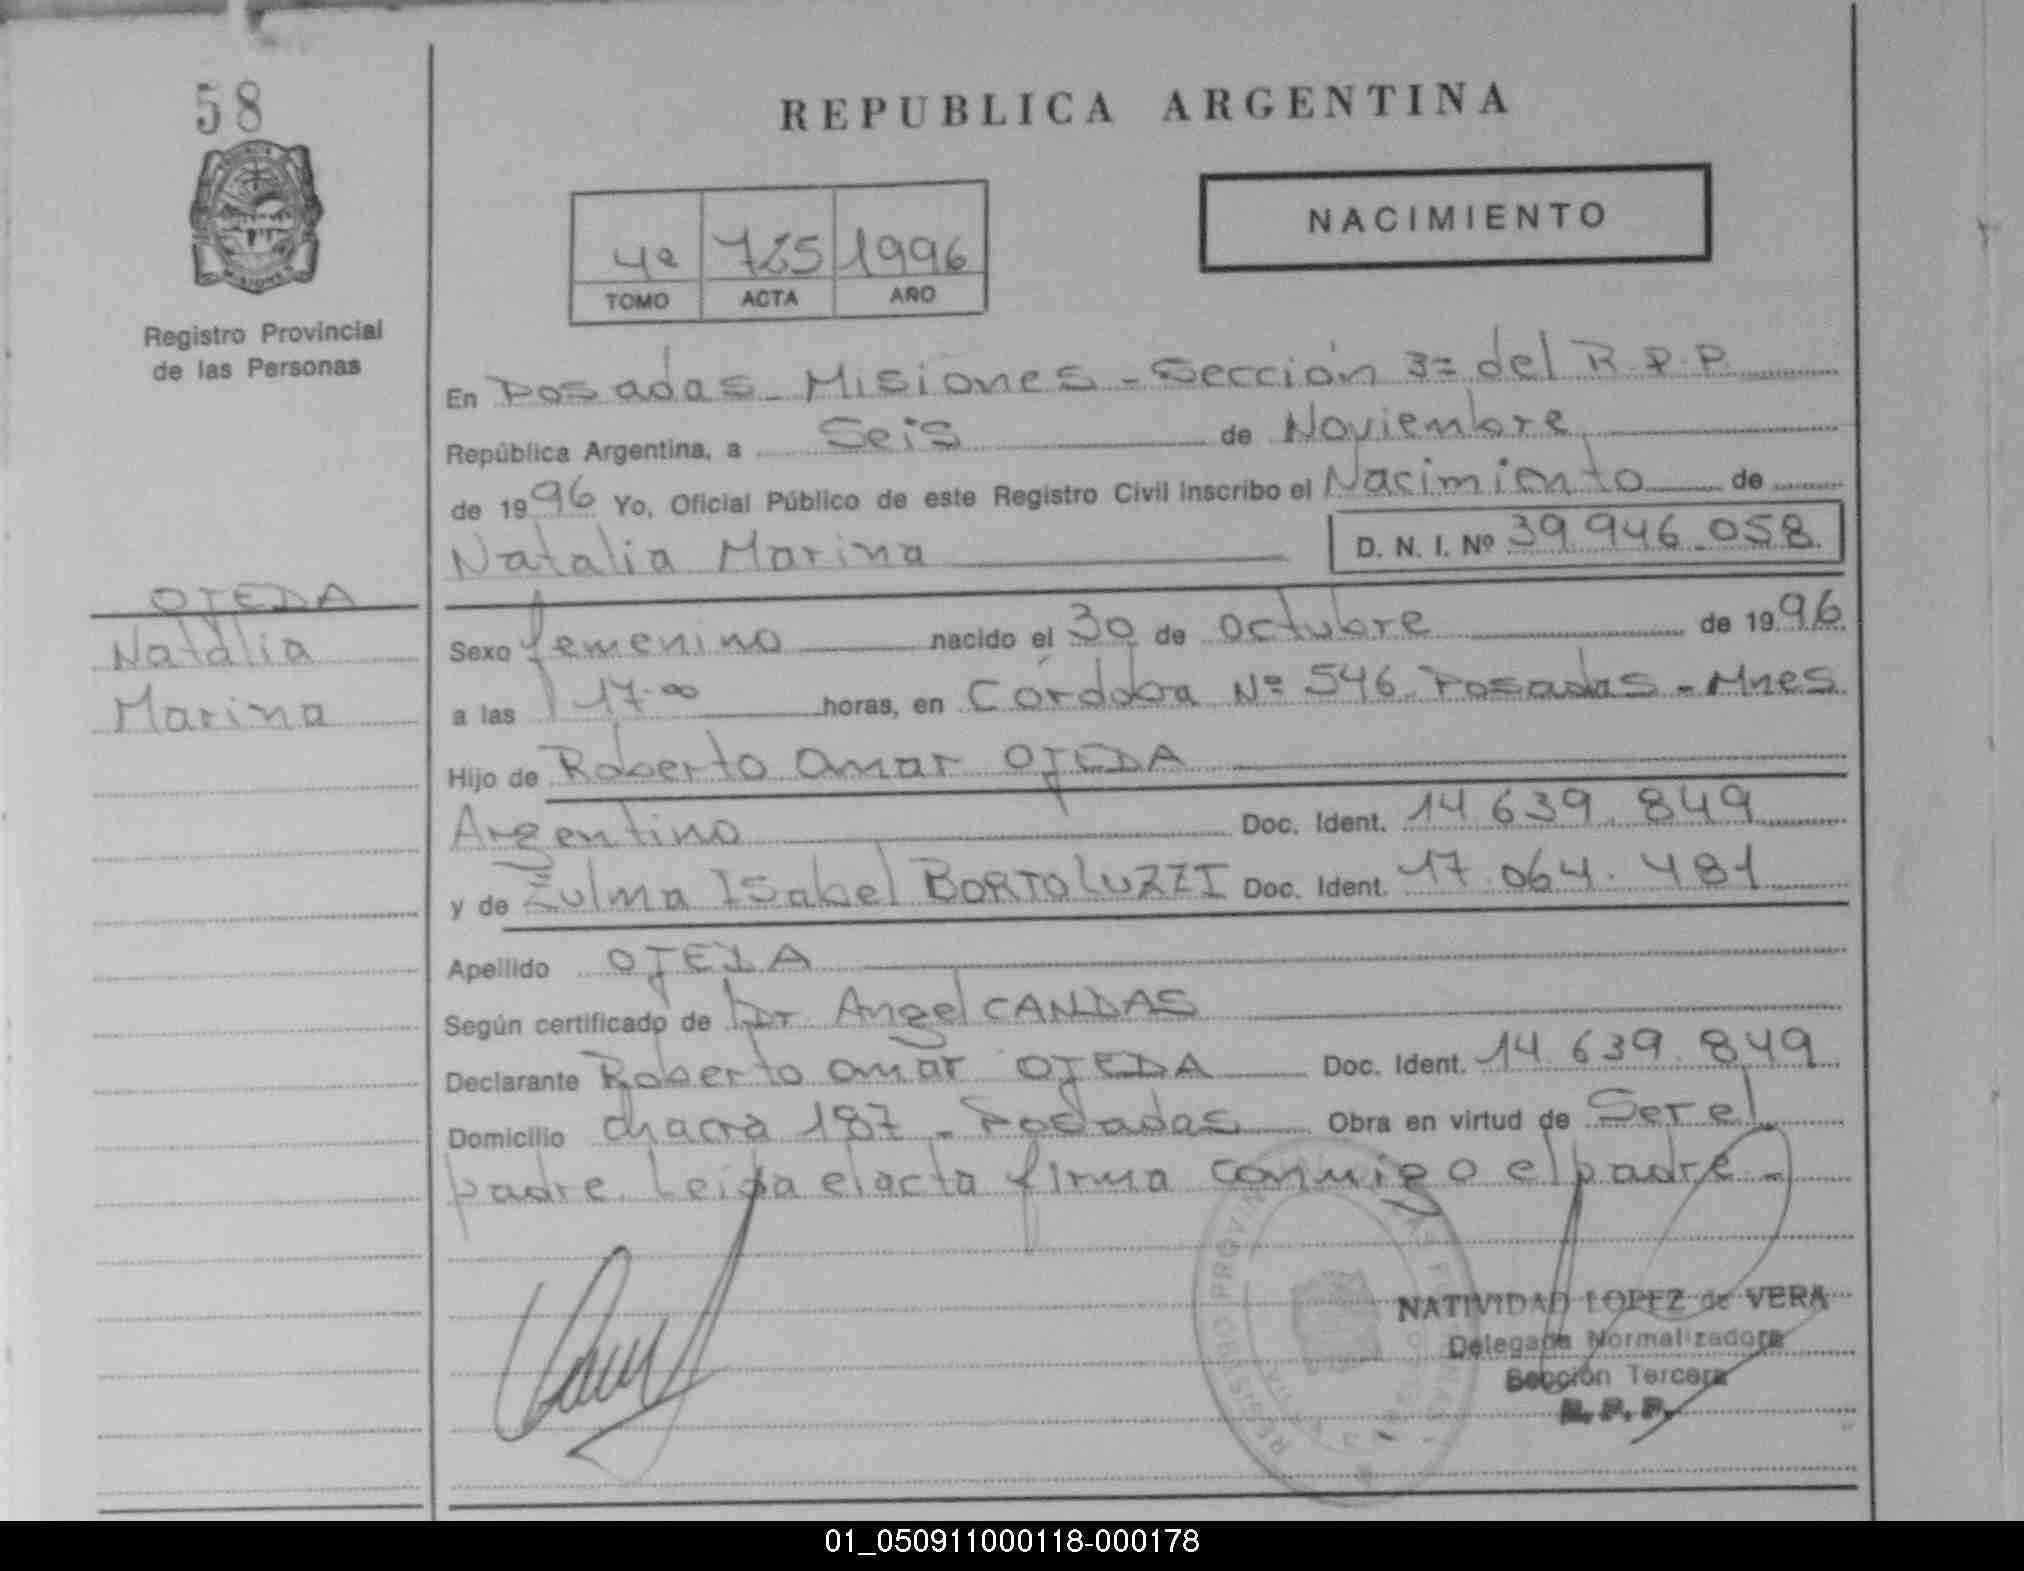 58
REPUBLICA ARGENTINA
NACIMIENTO
4º 725 1996
TOMO ACTA AÑO
Registro Provincial
de las Personas
En Posadas - Misiones - Sección 3= del R.P.P.
República Argentina, a Seis de Noviembre
de 1996 Yo, Oficial Público de este Registro Civil inscribo el Nacimiento de
Natalia Marina D. N. I. Nº 39.946.058
OJEDA
Natalia
Marina
Sexo femenino nacido el 30 de Octubre de 1996
a las 17.00 horas, en Córdoba Nº 546 Posadas - Mnes
Hijo de Roberto Omar OJEDA
Argentino Doc. Ident. 14.639.849
y de Zulma Isabel BORTOLUZZI Doc. Ident. 17.064.481
Apellido OJEDA
Según certificado de Dr Angel CANDAS
Declarante Roberto Omar OJEDA Doc. Ident. 14.639.849
Domicilio chacra 187 - Posadas Obra en virtud de Ser el
padre. Leída el acta firma conmigo el padre -
NATIVIDAD LOPEZ de VERA
Delegada Normalizadora
Sección Tercera
R. P. P.
01_050911000118-000178